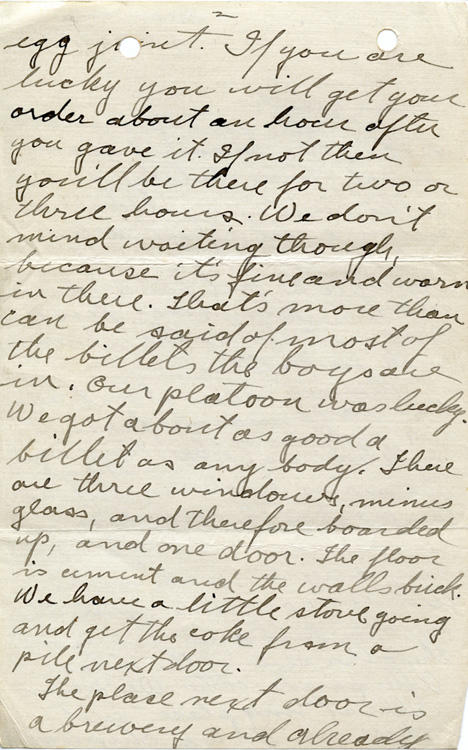 2
egg joint. If you are
lucky you will get your
order about an hour after
you gave it. If not then
you'll be there for two or
three hours. We don't
mind waiting though,
because it's fine and warm
in there. That's more than
can be said of most of
the billets the boys are
in. Our platoon was lucky.
We got about as good a
billet as any body. There
are three windows, minus
glass, and therefore boarded
up, and one door. The floor
is cement and the walls brick.
We have a little stove going
and get the coke from a
pile next door.
The place next door is
a brewery and already